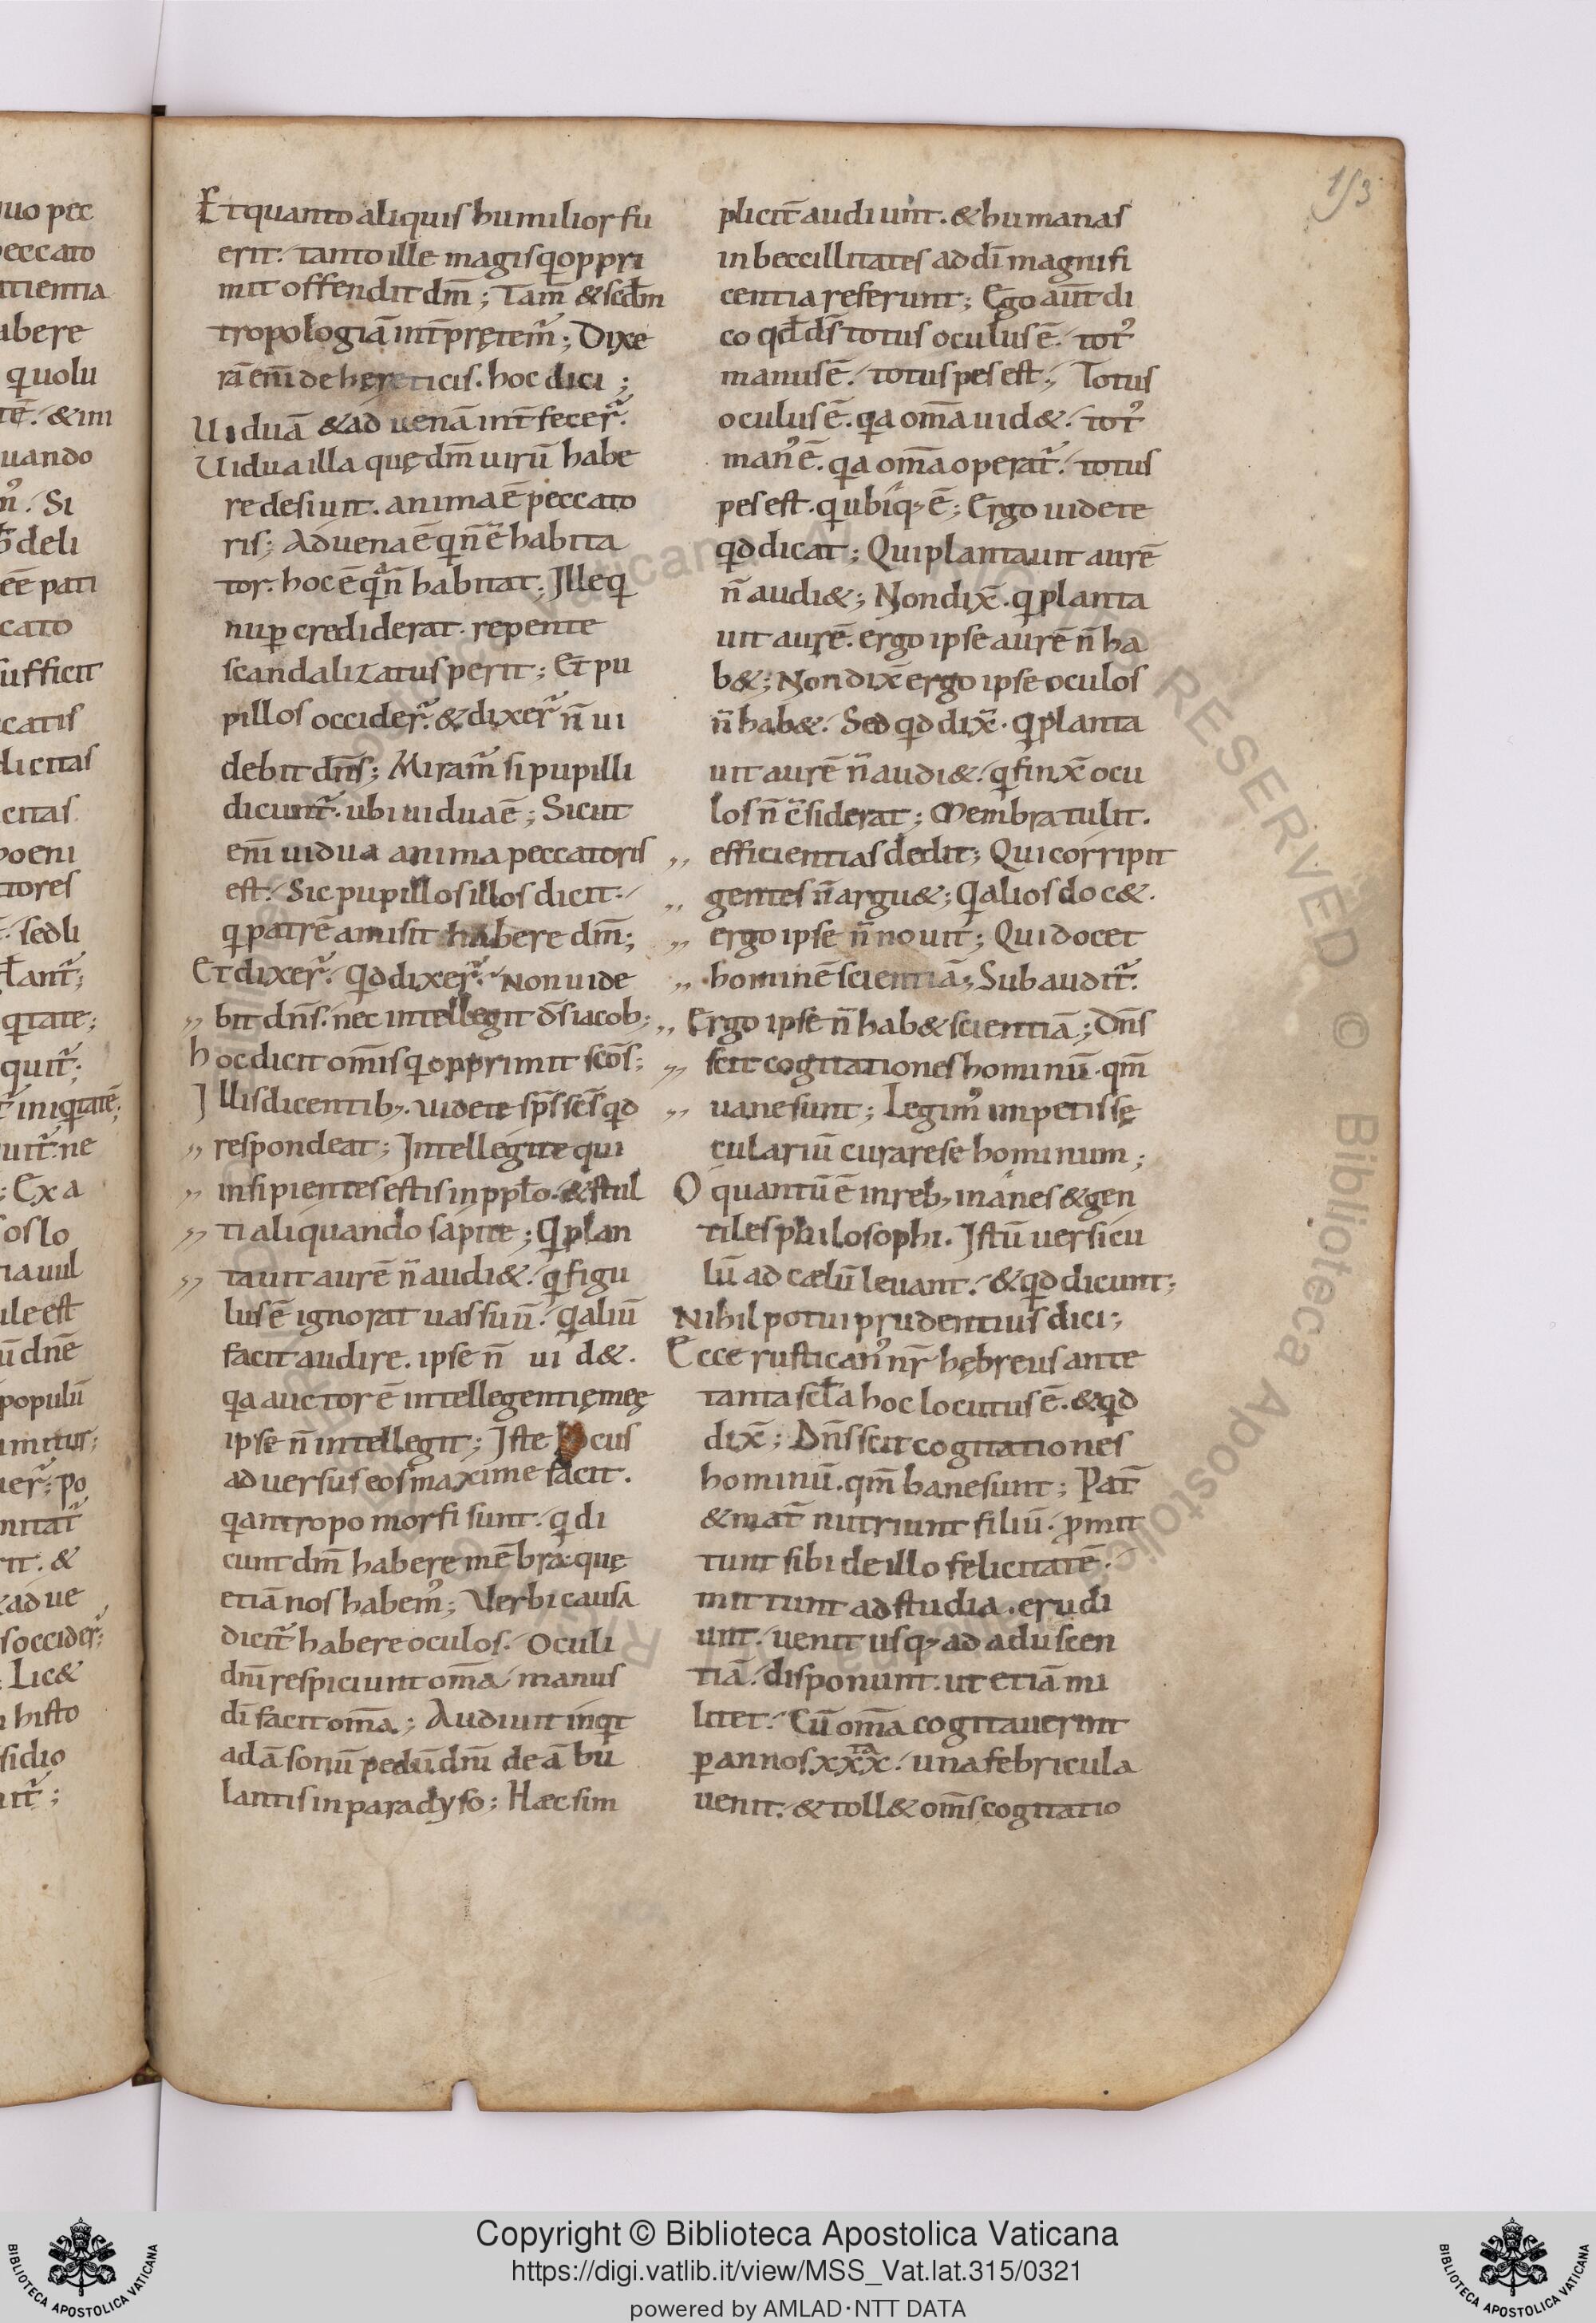 153
uo pec
eccato
tientia
abere
q uolu
tē. & im
uando
m̓. Si
deli
eē pati
cato
ufficit
catis
dicitas
citas
poeni
tores
sedli
q̄tate;
quit᷑;
iniq̄tatē;
uit᷑. ne
; Ex a
os lo
ia uul
ule est
ū dn̄e
populū
unitur;
uer᷑. po
nitat᷑
it. &
adue
s occider᷑;
Lic&
histo
sidio
Et quanto aliquis humilior fu
erit. tanto ille magis q̄ oppri
mit offendit dm̄; Tam̄ & scđm
tropologiā int̄prętem᷑; Dixe
rā eni̅ de hęreticis. hoc dici;
Uiduā & aduenā int̄fecer᷑.
Uidua illa quę dm̄ uirū habe
re desiuit. anima ē peccato
ris; Aduena ē q n̄ ē habita
tor. hoc ē q̄ n̄ habitat; Ille q
nup̄ crediderat. repente
scandalizatus perit; Et pu
pillos occider᷑. & dixer᷑ n̄ ui
debit dn̄s; Miram᷑ si pupilli
dicunt᷑. ubi uidua ē; Sicut
eni̅ uidua anima peccatoris
est. Sic pupillos illos dicit.
q patrē amisit habere dm̄;
Et dixer᷑. Qd dixer᷑. Non uide
,, bit dn̄s. nec intellegit ds̄ iacob;
Hoc dicit omīs q opprimit scōs;
Illis dicentib;. uidete sp̄s scs̄ qd
,, respondeat; Intellegite qui
,, insipientes estis in pplo. & stul
,, ti aliquando sapite; Q plan
,, tauit aurē n̄ audi&. q figu
lus ē ignorat uas suū. Q aliū
facit audire. ipse n̄ uid&.
qa auctor ē intellegentię meę
ipse n̄ intellegit; Iste locus
aduersus eos maxime facit.
q antropomorfi sunt. q di
cunt dm̄ habere mēbra. quę
etiā nos habem̓; Verbi causa
dicit᷑ habere oculos. Oculi
dni̅ respiciunt om̄a. manus
di̅ facit om̄a; Audiuit inq̄t
adā sonū pedū dni̅ deābu
lantis in paradyso; Hæc sim
plicit̄ audiunt. & humanas
inbeccillitates ad di̅ magnifi
centia referunt; Ego aut̄ di
co qđ ds̄ totus oculus ē. tot̓
manus ē. totus pes est; Totus
oculus ē. qa om̄a uid&. tot̓
man̓ ē. qa om̄a operat᷑. totus
pes est. q ubiq; ē; Ergo uidete
qd dicat; Qui plantauit aurē
n̄ audi&; Non dix̄. q planta
uit aurē. ergo ipse aurē n̄ ha
b&; Non dix̄ ergo ipse oculos
n̄ hab&. Sed qd dix̄. Q planta
uit aurē n̄ audi&. q finx̄ ocu
los n̄ c̄siderat; Membra tulit.
,, efficientias dedit; Qui corripit
,, gentes n̄ argu&; Q alios doc&.
,, ergo ipse n̄ nouit; Qui docet
,, hominē scientiā; Subaudit᷑.
,, Ergo ipse n̄ hab& scientiā; Dn̄s
,, scit cogitationes hominū. qm̄
,, uane sunt; Legim̓ impetis sę
culariū curare se hominum;
O quantū ē in reb; inanes & gen
tiles philosophi. Istū uersicu
lū ad cælū leuant. & qd dicunt;
Nihil potui prudentius dici;
Ecce rustican̓ nr̄ hębreus ante
tanta scła hoc locutus ē. & qd
dix̄; Dn̄s scit cogitationes
hominū. qm̄ bane sunt; Pat̄
& mat̄ nutriunt filiū. p̄mit
tunt sibi de illo felicitatē.
mittunt ad studia. erudi
unt. uenit usq; ad aduscen
tiā. disponunt. ut etiā mi
litet. Cū om̄a cogitauerint
p annos xxx ta. una febricula
uenit. & toll& om̄s cogitatio
Copyright © Biblioteca Apostolica Vaticana
https://digi.vatlib.it/view/MSS_Vat.lat.315/0321
powered by AMLAD·NTT DATA
BIBLIOTECA APOSTOLICA VATICANA
BIBLIOTECA APOSTOLICA VATICANA